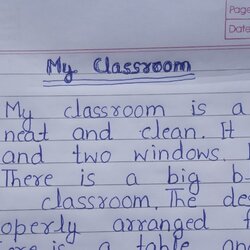 Page
Date
My Classroom
My classroom is a
neat and clean. It
and two windows.
There is a big b
classroom. The des
operly arranged
is a table an